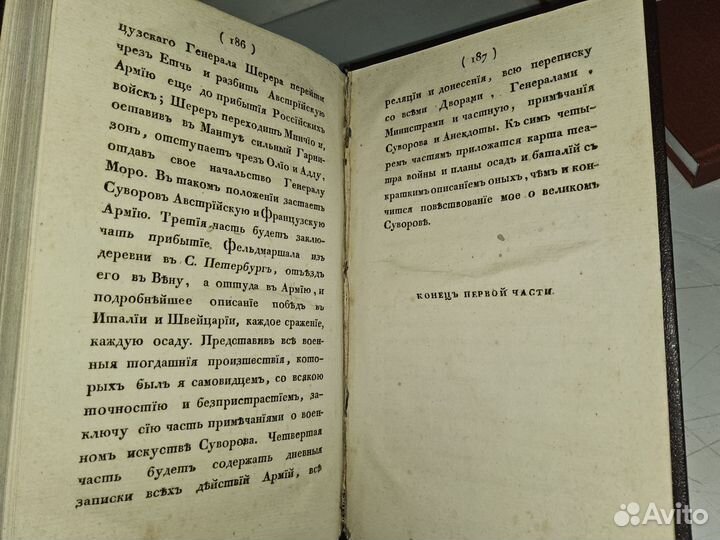 ( 186 )
цузскаго Генерала Шерера перейти
чрезъ Етчь и разбить Австрійскую
Армію еще до прибытія Россійскихъ
войскъ; Шереръ переходитъ Минчіо и,
оставивъ въ Мантуѣ сильный Гарни-
зонъ, отступаетъ чрезъ Оліо и Адду,
отдавъ свое начальство Генералу
Моро. Въ такомъ положеніи застаетъ
Суворовъ Австрійскую и Французскую
Армію. Третія часть будетъ заклю-
чать прибытіе Фельдмаршала изъ
деревни въ С. Петербургъ, отъѣздъ
его въ Вѣну, а оттуда въ Армію, и
подробнѣйшее описаніе побѣдъ въ
Италіи и Швейцаріи, каждое сраженіе,
каждую осаду. Представивъ всѣ воен-
ныя тогдашнія произшествія, кото-
рыхъ былъ я самовидцемъ, со всякою
точностію и безпристрастіемъ, за-
ключу сію часть примѣчаніями о воен-
номъ искуствѣ Суворова. Четвертая
часть будетъ содержать дневныя
записки всѣхъ дѣйствій Армій, всѣ
( 187 )
реляціи и донесенія, всю переписку
со всѣми Дворами, Генералами,
Министрами и частную, примѣчанія
Суворова и Анекдоты. Къ симъ четы-
ремъ частямъ приложатся карта теа-
тра войны и планы осадъ и баталій съ
краткимъ описаніемъ оныхъ, чѣмъ и кон-
чится повѣствованіе мое о великомъ
Суворовѣ.
КОНЕЦЪ ПЕРВОЙ ЧАСТИ.
Avito